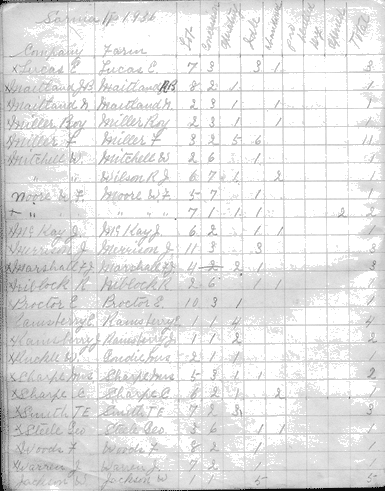 Sarnia Tp 1936
Company Farm Lot Total
x Lucas E Lucas E 7 3 3 1 3
x Maitland JB Maitland JB 8 2 1 1
x Maitland N. Maitland N. 2 3 1 1 1
Miller Roy Miller Roy 2 3 1 1 1
x Miller F Miller F 3 2 5 6 11
Mitchell W. Mitchell W 2 6 1 1
" " Wilson R J 6 7 1 2 1
Moore W F. Moore W F. 5 7 1 1
" " " " " 7 1 1 1 2 2
x McKay J McKay J. 6 2 1 1 1
x Merrison J Merrison J. 11 3 3 3
x Marshall F J Marshall F J 4 2 2 1 3
x Niblock R Niblock R 2 6 1 1 1
x Proctor E Proctor E. 10 3 1 1
Ramsberry E Ramsberry E 1 1 4 4
x Ramsberry J Ramsberry J 1 1 2 2
x W. Condie Mrs 2 1 1 1
x Sharpe Mrs E Sharpe Mrs 5 3 1 1 2
x Sharpe C. Sharpe C 6 2 1 2 1
x Smith T E Smith T E 7 2 3 3
x Steele Geo Steele Geo 3 6 1 1 1
x Woods F Woods F 8 2 1 1
x Warren J Warren J. 7 2 1 1
Jackson W Jackson W 1 1 5 5